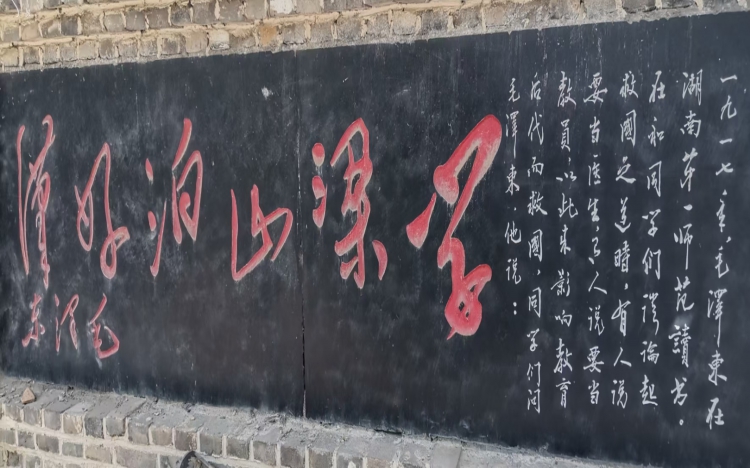 一九一七年,毛澤東在
湖南第一师范讀书。
在和同学们谈論起
救國之道時,有人说
要当医生,有人说要当
教員,以此来影响教育
后代而救國,同学们问
毛澤東他说：
学梁山泊好漢
毛泽东